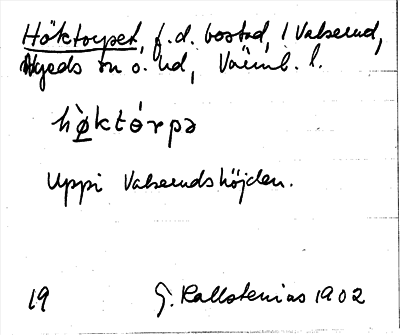 Höktorpet, f.d. bostad, 1 Valserud,
Nyeds sn o. hd, Värml. l.
hø̀którpə
Uppi Valserudshöjden.
19 G. Kallstenius 1902